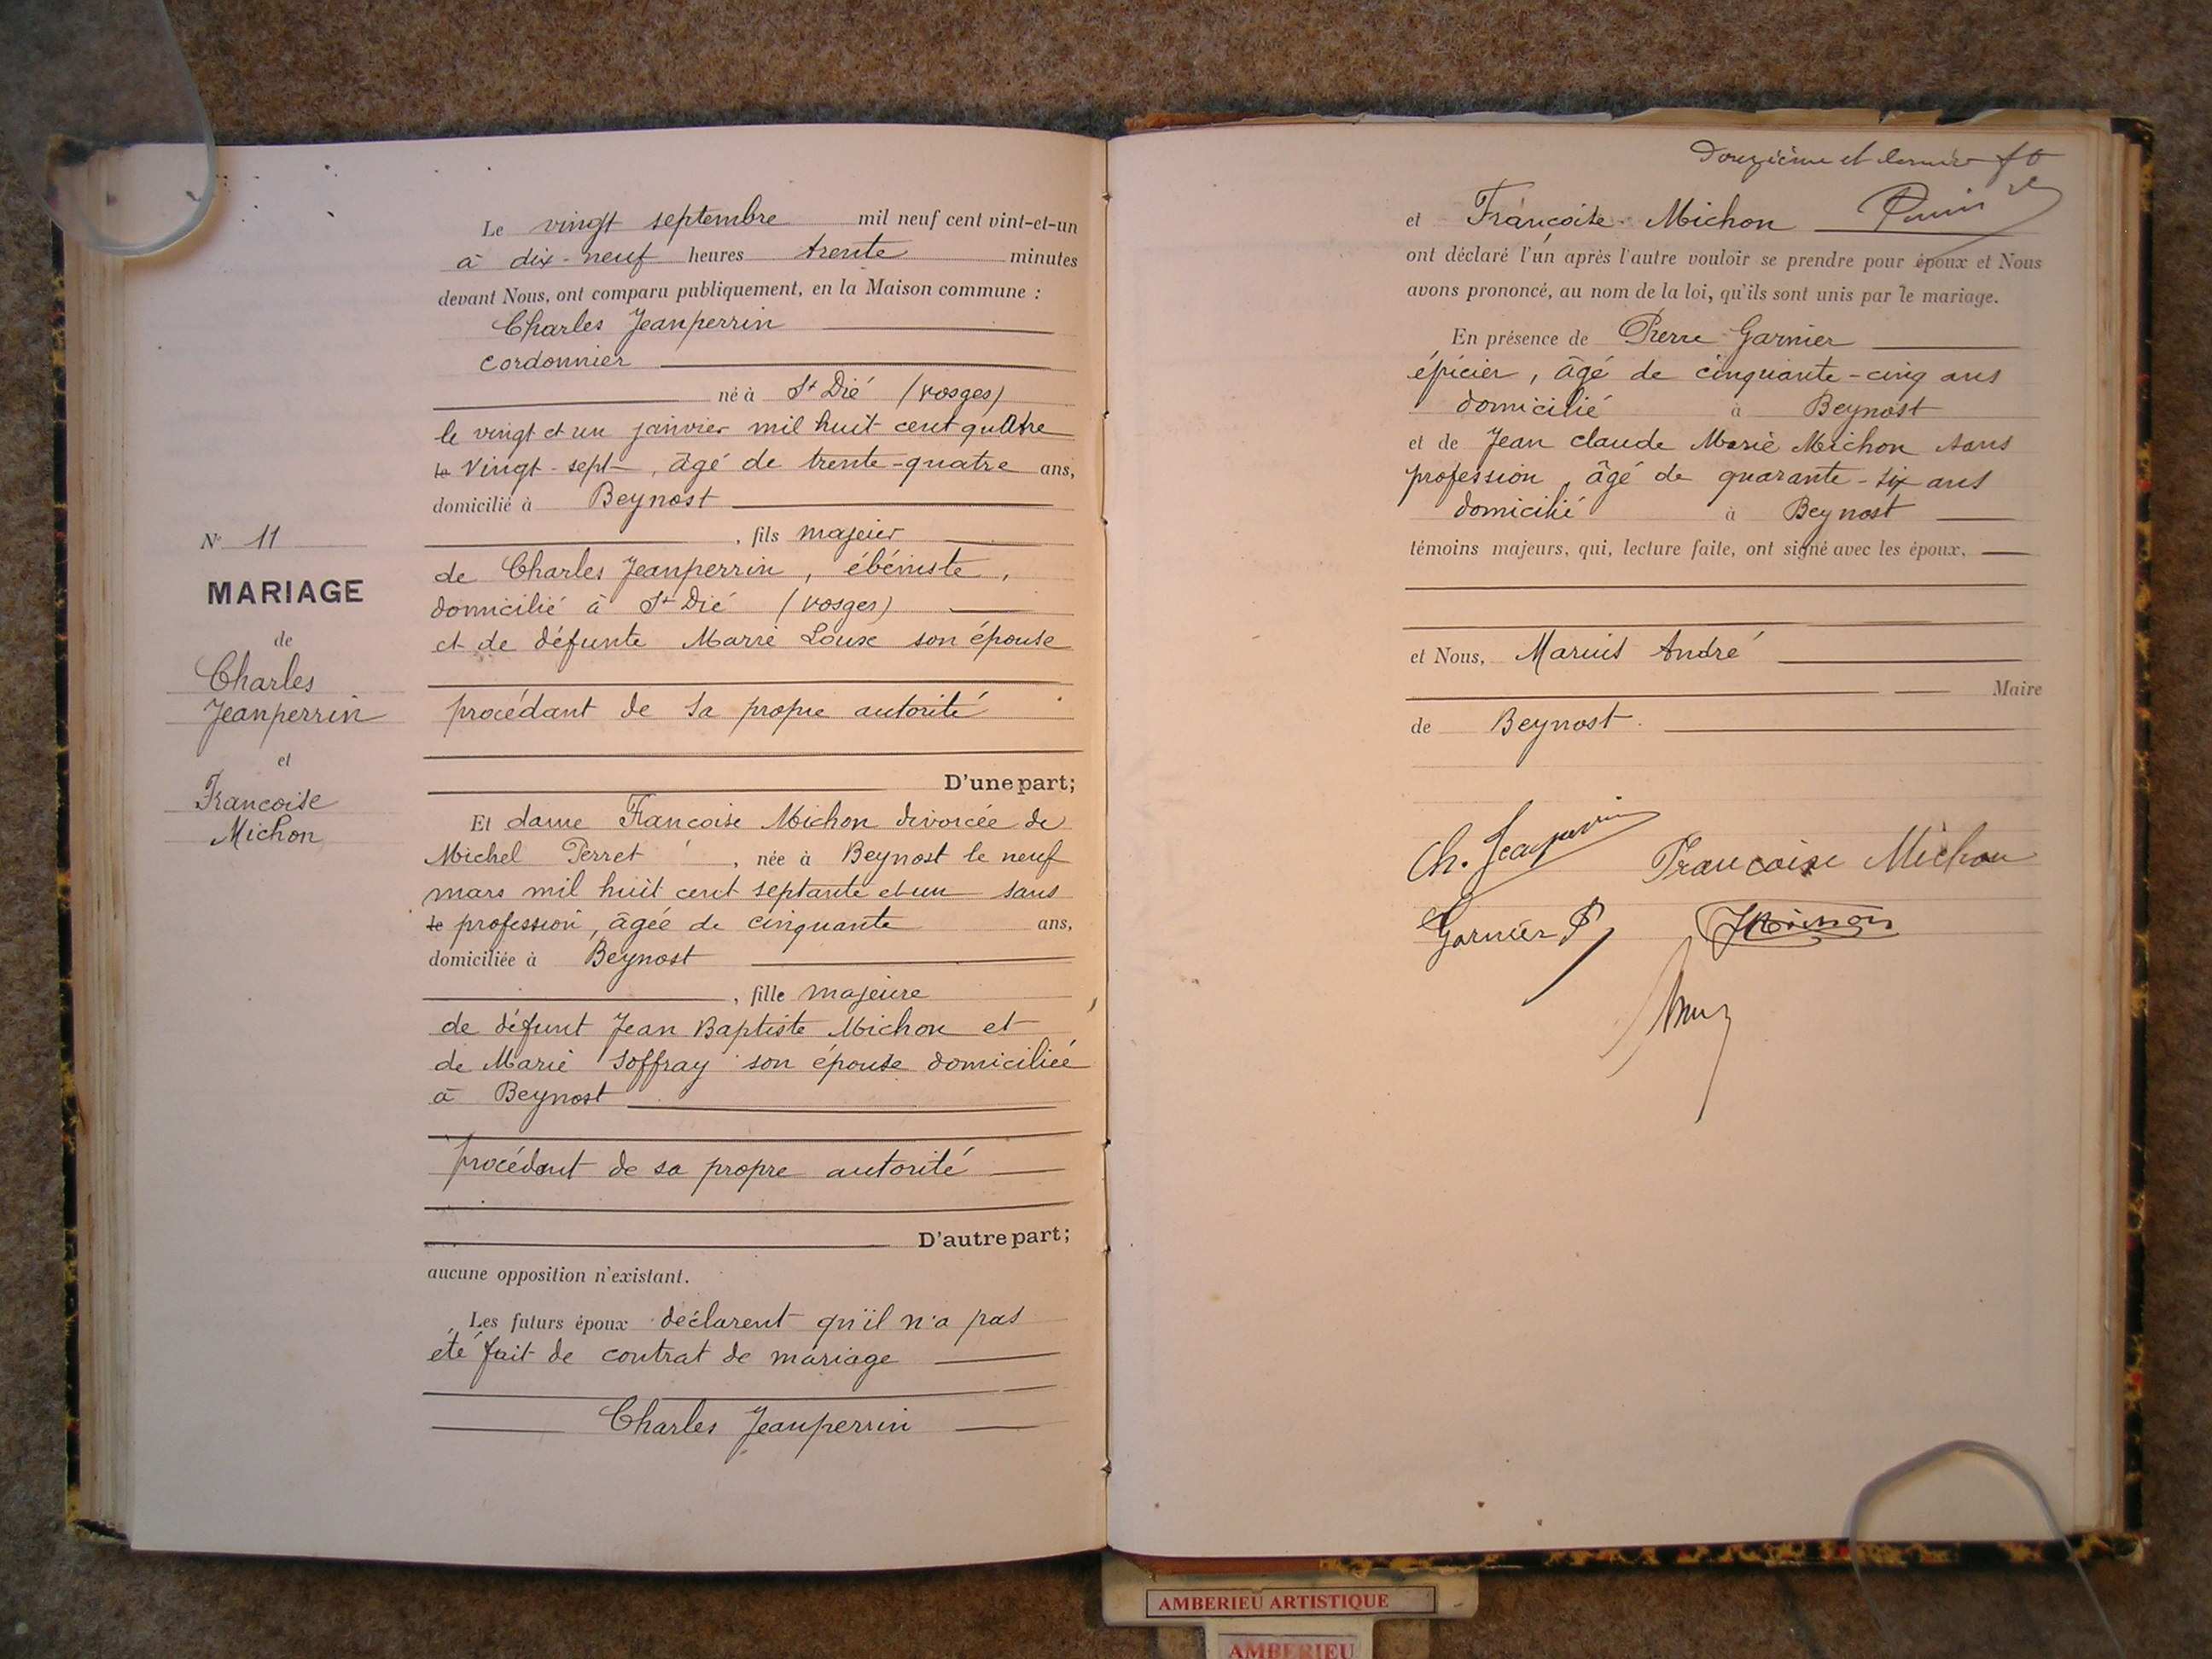 Le vingt septembre mil neuf cent vint-et-un
à dix-neuf heures trente minutes
devant Nous, ont comparu publiquement, en la Maison commune :
Charles Jeanperrin
cordonnier
né à St Dié (Vosges)
le vingt et un janvier mil huit cent quatre
le vingt-sept, âgé de trente-quatre ans,
domicilié à Beynost
, fils majeur
de Charles Jeanperrin, ébéniste,
domicilié à St Dié (Vosges)
et de défunte Marie Louse son épouse
procédant de sa propre autorité
D'une part;
Et dame Francoise Michon divorcée de
Michel Perret, née à Beynost le neuf
mars mil huit cent septante et un sans
le profession, âgée de cinquante ans,
domiciliée à Beynost
, fille majeure
de défunt Jean Baptiste Michon et
de Marie Joffray son épouse domiciliée
à Beynost
procédant de sa propre autorité
D'autre part;
aucune opposition n'existant.
Les futurs époux déclarent qu'il n'a pas
été fait de contrat de mariage
Charles Jeanperrin
N° 11
MARIAGE
de
Charles
Jeanperrin
et
Francoise
Michon
Douzième et dernier
et Francoise Michon
ont déclaré l'un après l'autre vouloir se prendre pour époux et Nous
avons prononcé, au nom de la loi, qu'ils sont unis par le mariage.
En présence de Pierre Garnier
épicier, âgé de cinquante-cinq ans
domicilié à Beynost
et de Jean claude Marie Michon sans
profession, âgé de quarante-six ans
domicilié à Beynost
témoins majeurs, qui, lecture faite, ont signé avec les époux,
et Nous, Marius André
Maire
de Beynost.
Ch. Jeanperrin Francoise Michon
Garnier P
AMBERIEU ARTISTIQUE
AMBERIEU